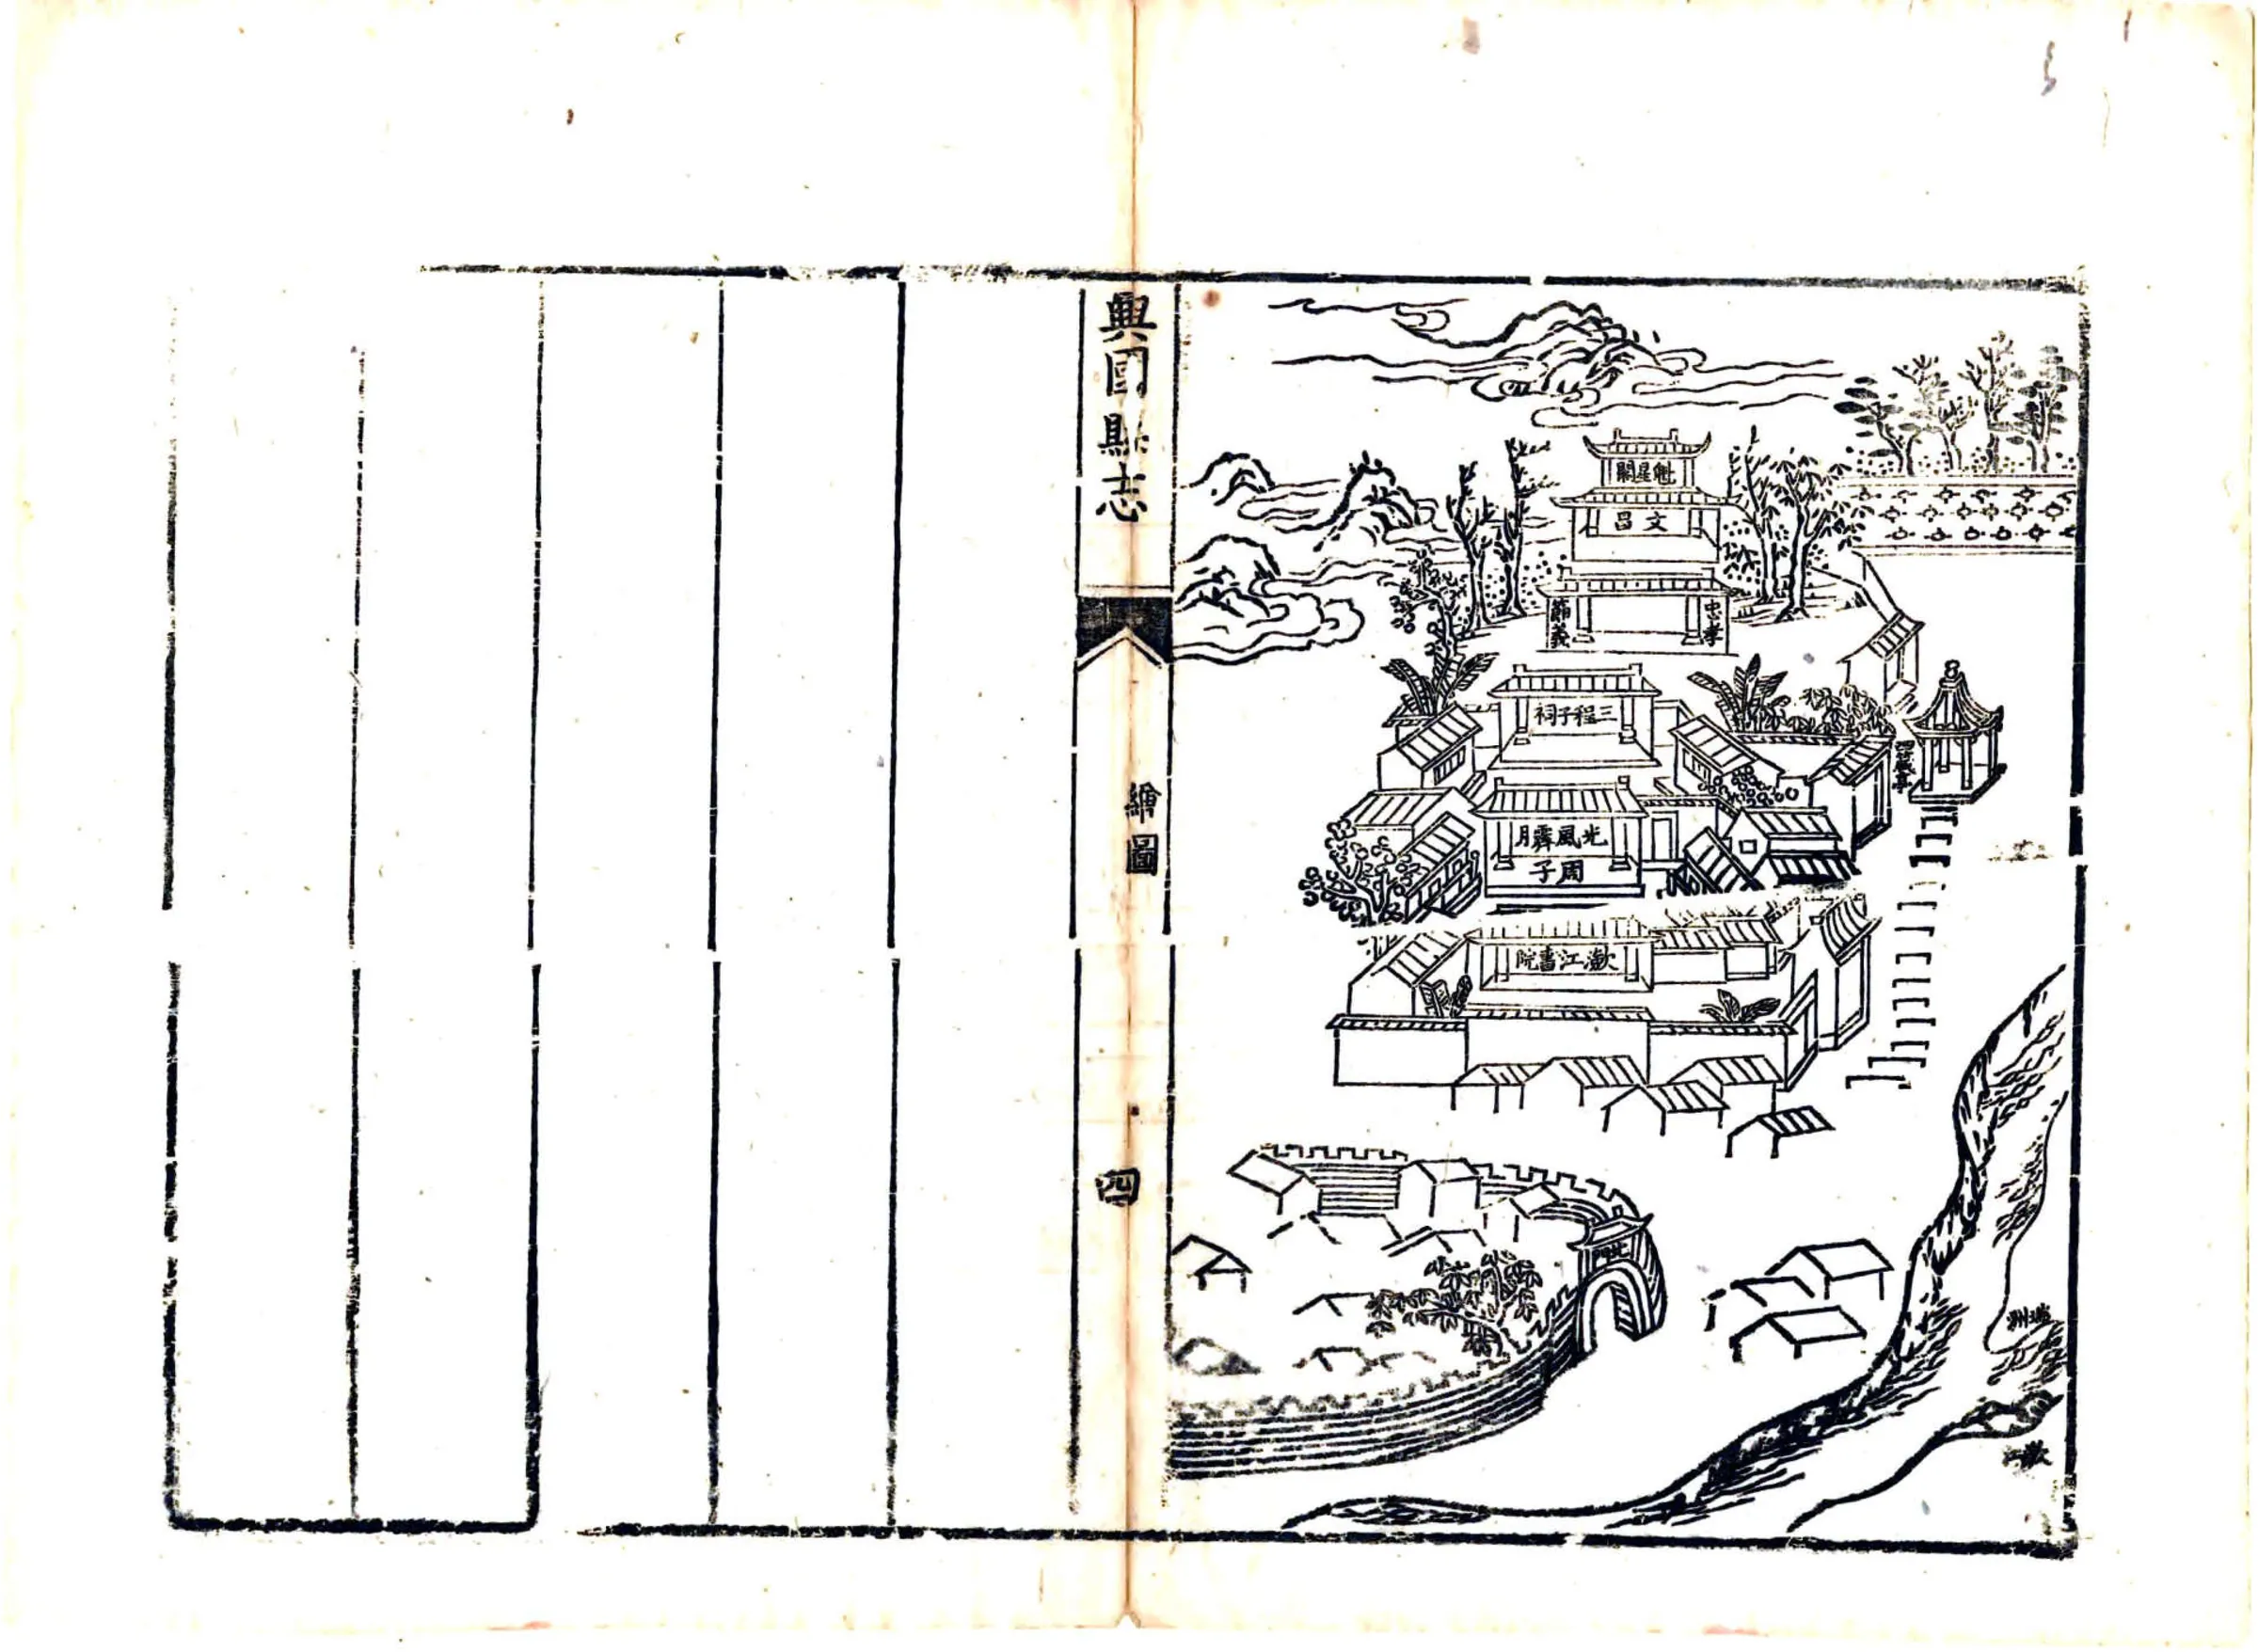 魁星閣
文昌
忠孝
節義
三程子祠
光風霽月
周子
瀲江書院
北門
興國縣志
繪圖
四